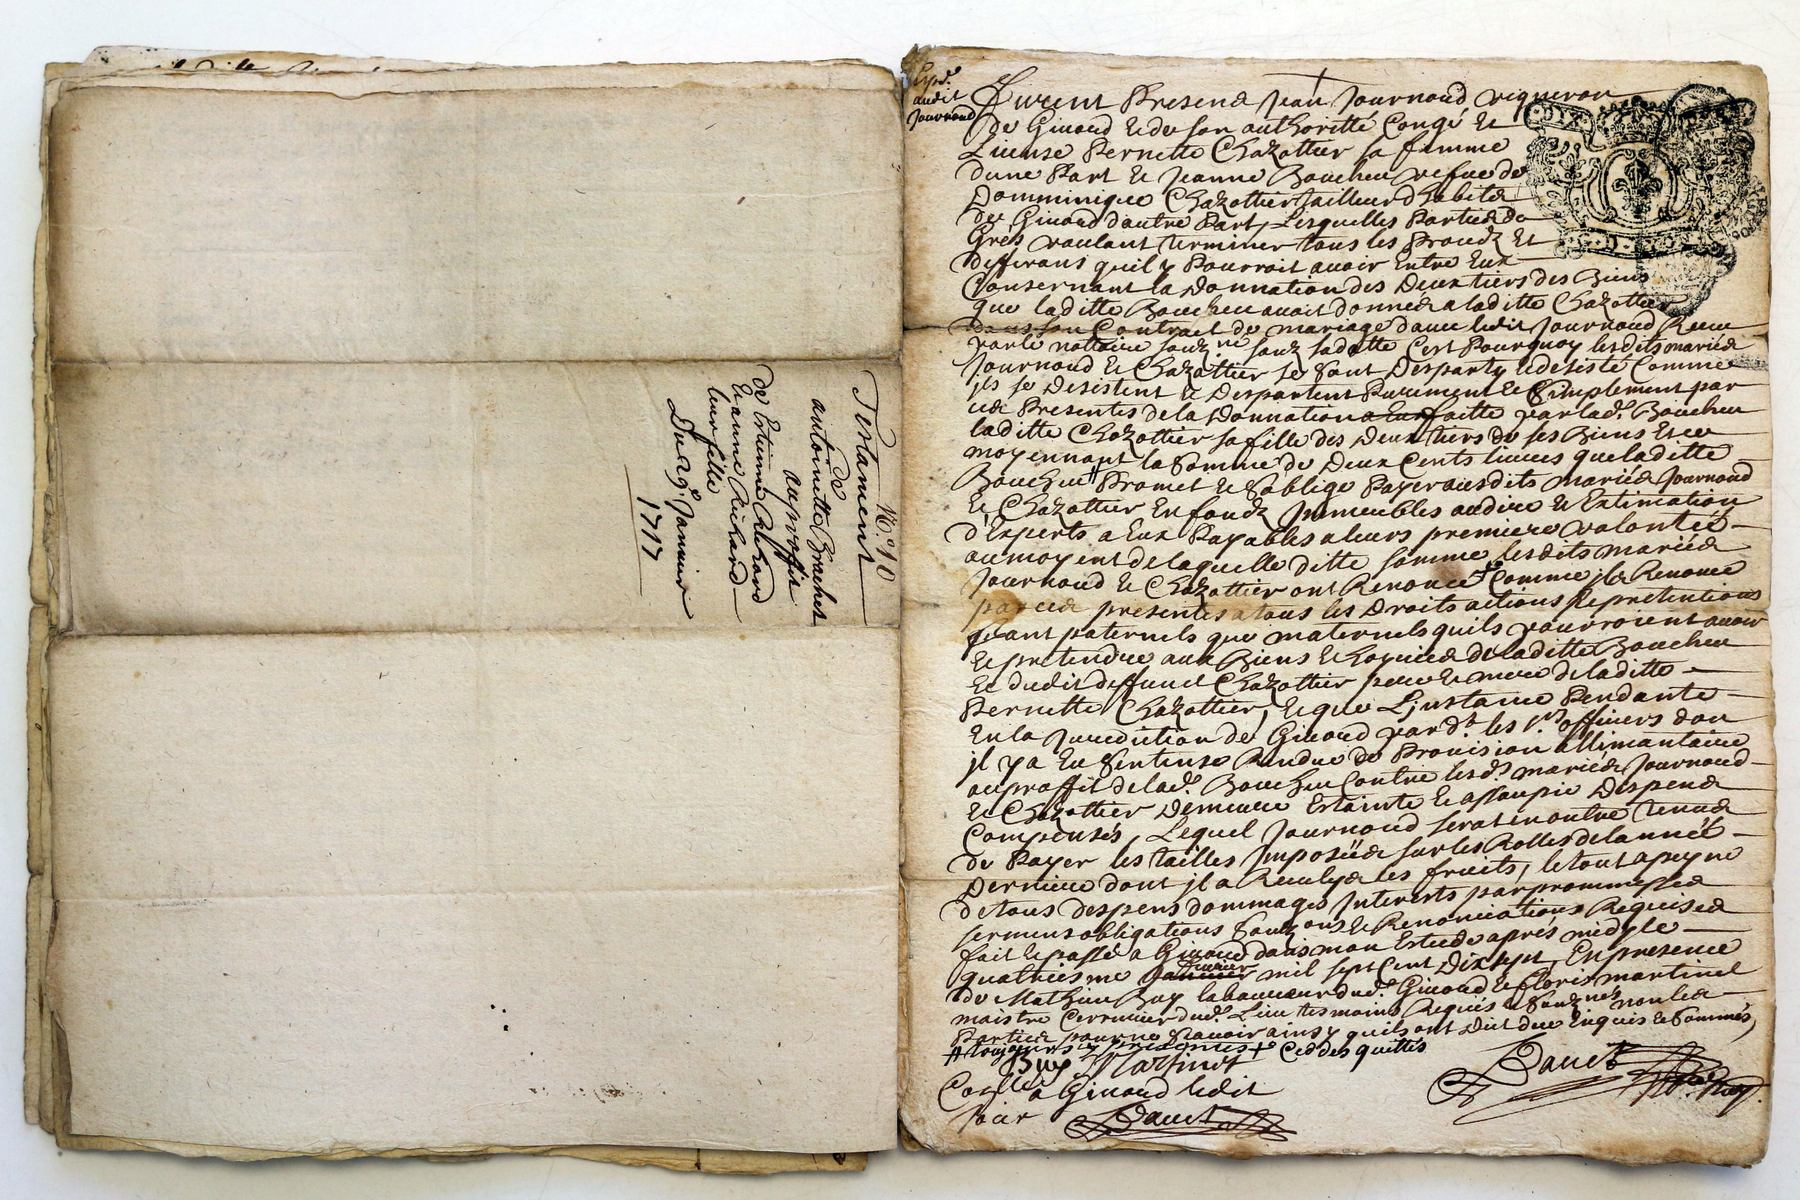 N.° 10
Testament
de
antoinette Brachet
au proffit
de Estienne Richard
Et anne Richard
leur fille
Du 29.e Janvier
1717
Exped.e
audit
Journoud
Furent Presens Jean Journoud vigneron
de Givord et de son authoritté Congé et
License Pernette Chazottier sa femme
dune Part et Jeanne Boucheu vefue de
Domminique Chazottier tailleur dhabits
de Givord dautre Part, Lesquelles Parties de
Gres voulant terminer tous les Proudz Et
differans quil y Pourroit avoir Entre Eux
Consernant la Donnation des Deux tiers des Biens
que laditte Boucheu avoit donnés a laditte Chazottier
dans son Contrait de mariage davec ledit Journoud Receu
par le nottaire souz.né souz sa datte C'est Pourquoy lesdits mariés
Journoud et Chazottier se sont Desparty et desisté Comme
jls se Desistent et Despartent Purement et Simplement par
ces Presentes de la Donnation faitte par lad.e Boucheu
laditte Chazottier sa fille des Deux tiers de ses Biens Et ce
moyennant la Somme de Deux Cents livres que laditte
Boucheu # Promet et s'oblige Payer ausdits mariés Journoud
et Chazottier En fondz Jmmeubles au dire et Estimation
d'Experts a Eux Payables a leurs premieres volontés
au moyent de laquelle ditte somme lesdits mariés
Journoud et Chazottier ont Renoncé + Comme jls Renonce
par ces presentes a tous les Droits actions et pretentions
soant paternels que maternels quils pourroient avoir
et pretendre aux Biens et hoyries de laditte Boucheu
et dudit deffunct Chazottier pere et mere de laditte
Pernette Chazottier, et que L'jnstance Pendante
En la Jurediction de Givord pard.t les s.rs officiers dou
jl y a Eu Sentense Rendue de Provision allimantaire
au proffit de lad.e Boucheu Contre lesd.s mariés Journoud
et Chazottier Demeure Estainte et assoupie Despens
Compensés, Lequel Journoud serat en outre tenus
de Payer les tailles Jmposées sur les Rolles de lannée
Derniere dont jl a Receu les fruits, le tout a peyne
de tous despens dommages Interets par prommesses
sermens obligations souz.ons et Renonciations Requises
fait et passé a Givord dans mon Estude aprés midy le
quatriesme feuvrier mil sept Cent Dix sept, En presence
de Mathieu Buy laboureur dud.t Givord et Floris martinet
maistre Cerrurier dud.t Lieu tesmoins Requis et Souz.nés non les
Parties pour ne Scavoir ainsy quils ont Dit de ce Enquis et Sommés,
+ Ced des quittés
Buy Martinet
Dauet
a Givord ledit
Jour
Dauet